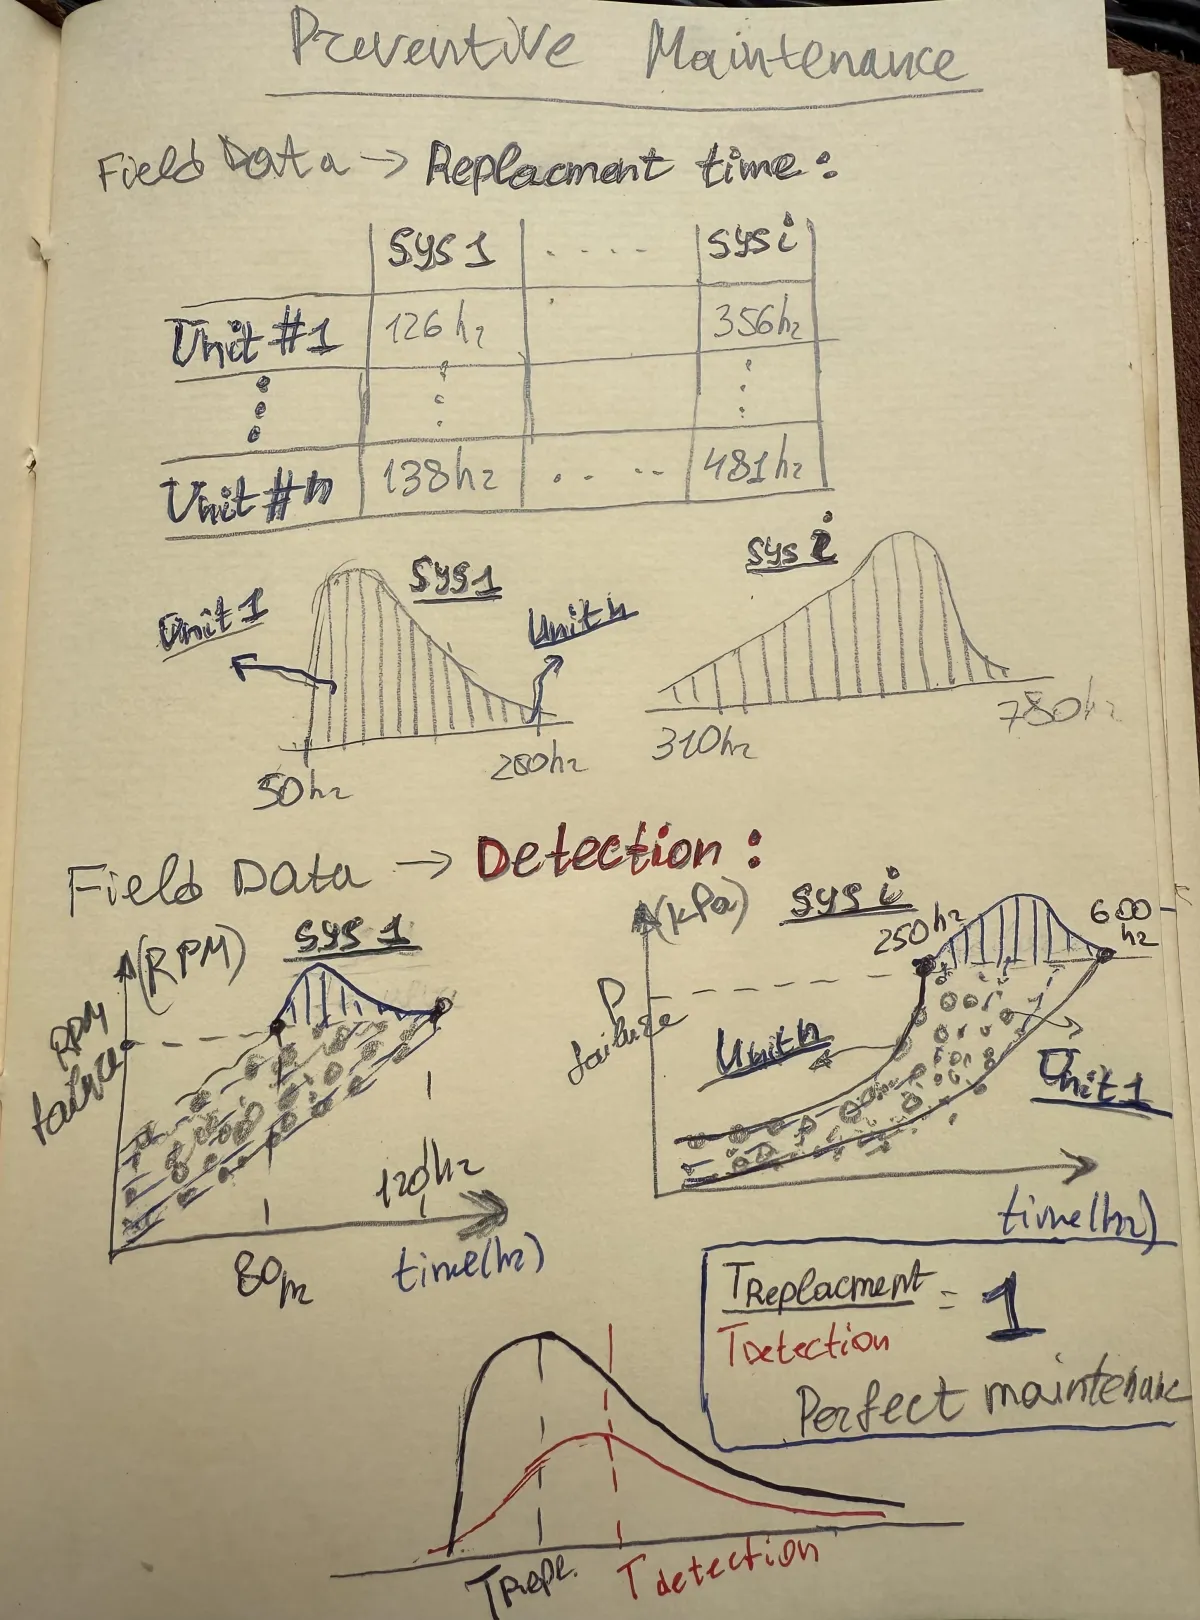 Preventive Maintenance
Field Data → Replacment time:
Sys 1 .... Sys i
Unit #1 126hr 356hr
Unit #n 138hr .. .. 481hr
Sys 1
Sys i
Unit 1
Unit n
50hr
280hr
310hr
780hr
Field Data → Detection:
(RPM)
Sys 1
RPM
failure
80hr
120hr
time(hr)
(kPa)
Sys i
250hr
600
hr
P
failure
Unit n
Unit 1
time(hr)
TReplacment
TDetection
= 1
Perfect maintenanc
TRepl.
Tdetection